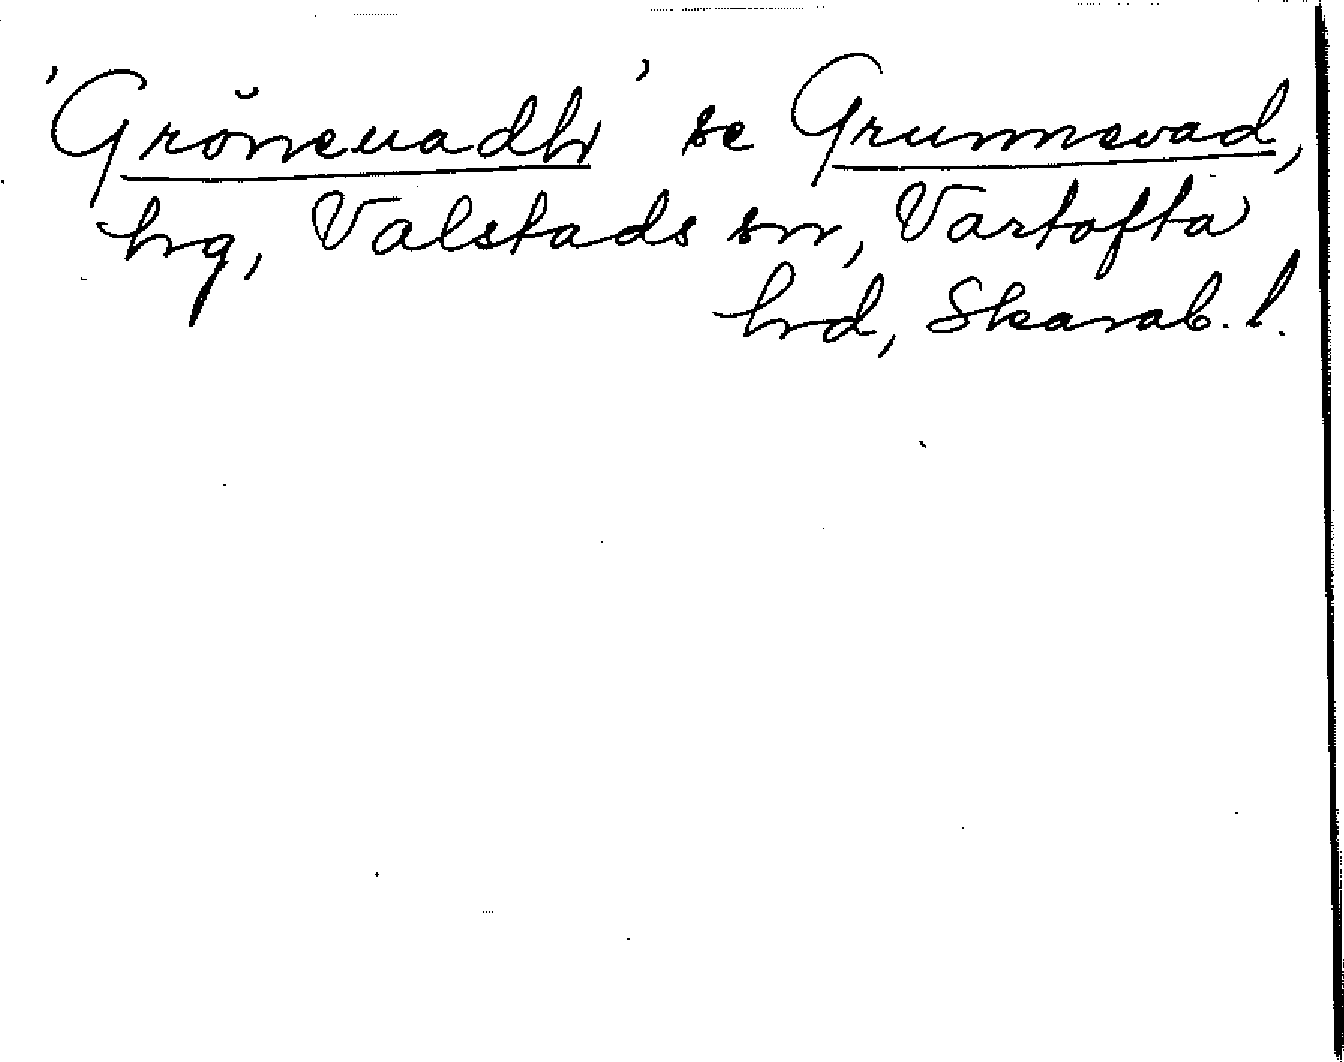 'Grŏneuadh' se Grunnevad,
hg, Valstads sn, Vartofta
hd, Skarab. l.